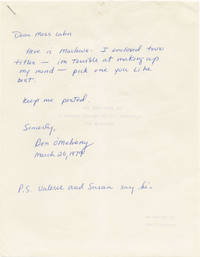 Dear Miss Cahn
Here is Machans. I enclosed two
titles — im terrible at making up
my mind — pick one you like
best.
Keep me posted.
Sincerely,
Don O'Mahony
March 20, 1979
P.S. Valerie and Susan say hi.